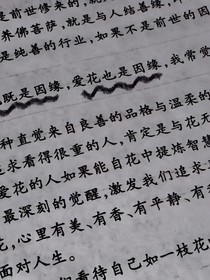 是前世修来的,就
养佛菩萨,就是与人结善缘,
是纯善的行业,如果不是前世的因
既是因缘,爱花也是因缘,我常觉
种直觉来自良善的品格与温柔的
来看得很重的人,肯定是与花无
爱花的人如果能自花中提炼智慧
最深刻的觉醒,激发我们追求
花,心里有美、有香、有平静、有
面对人生。
们看待自己如一枝花